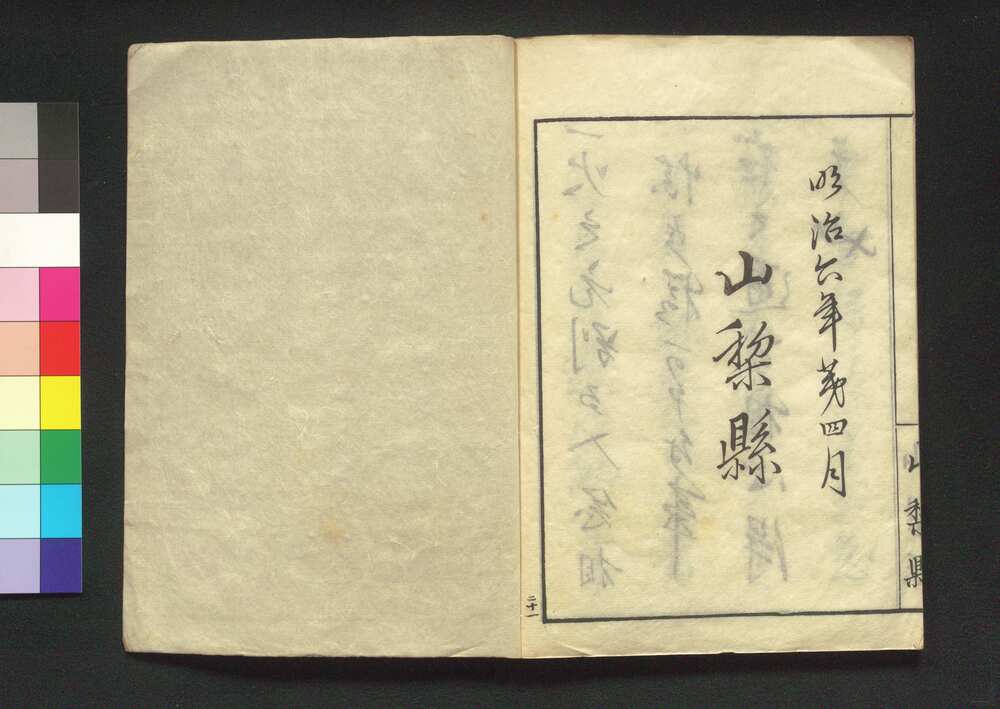 明治六年第四月
山梨縣
山梨県
二十一